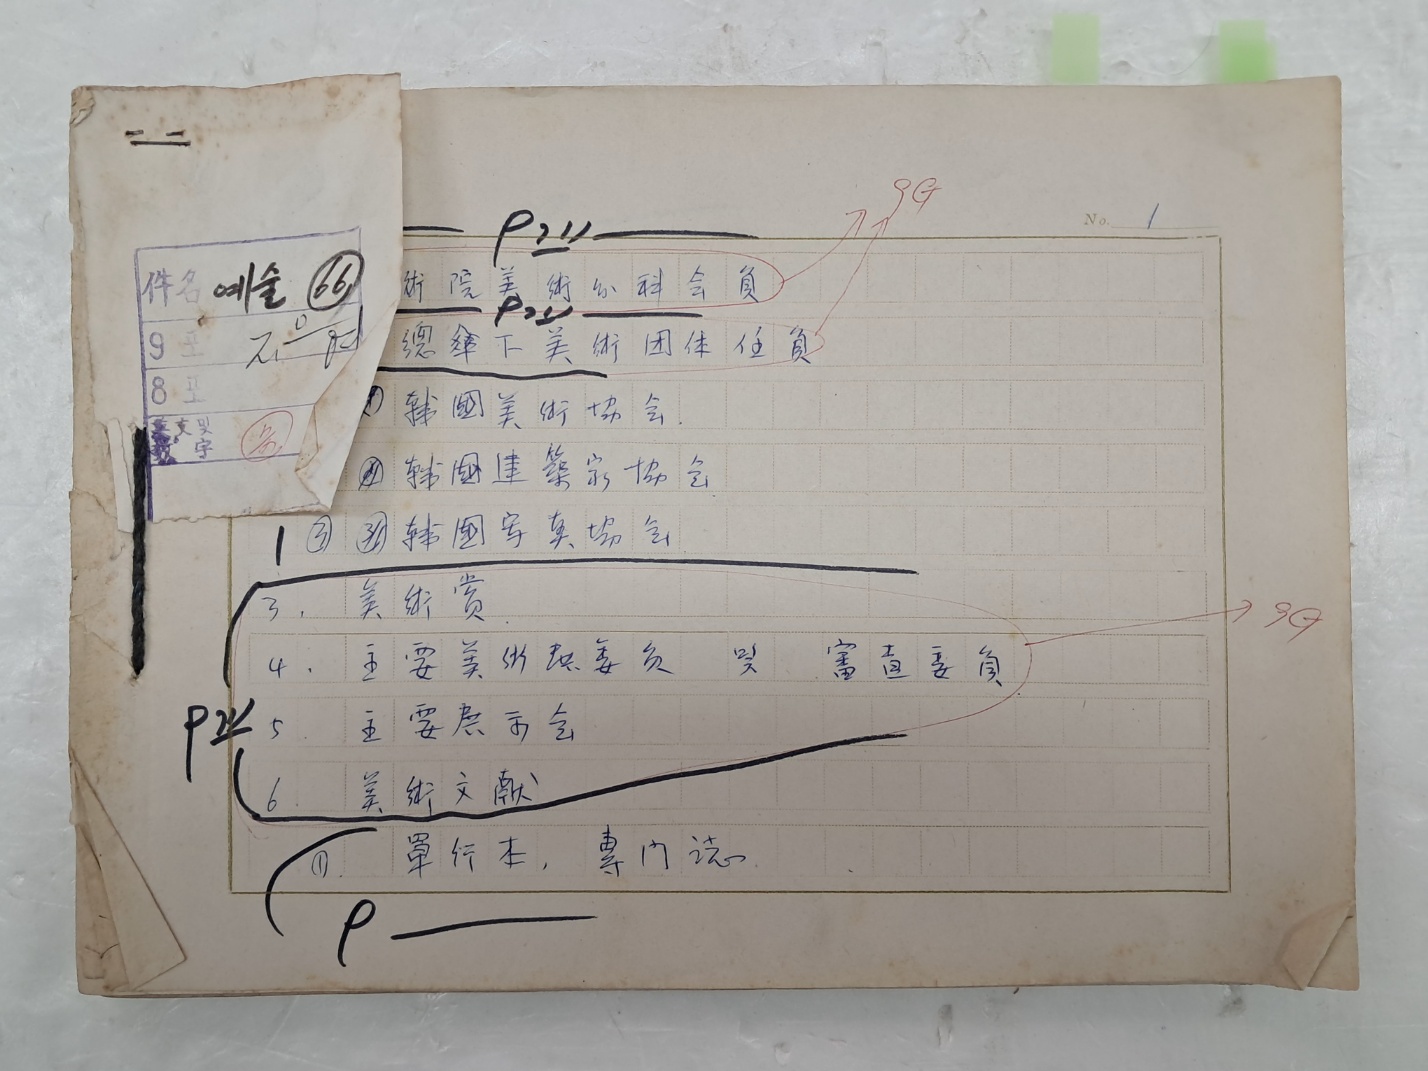 9G
No. 1
P211
術院美術分科会員
P211
總傘下美術団体任員
韓國美術協会.
韓國建築家協会
1 ③ 韓國写真協会
3. 美術賞
4. 主要美術展委員 및 審査委員
9G
P211
5 主要展示会
6. 美術文献
① 單行本, 專門誌
P
件名 예술 66
9포
8포
英文 및
數字